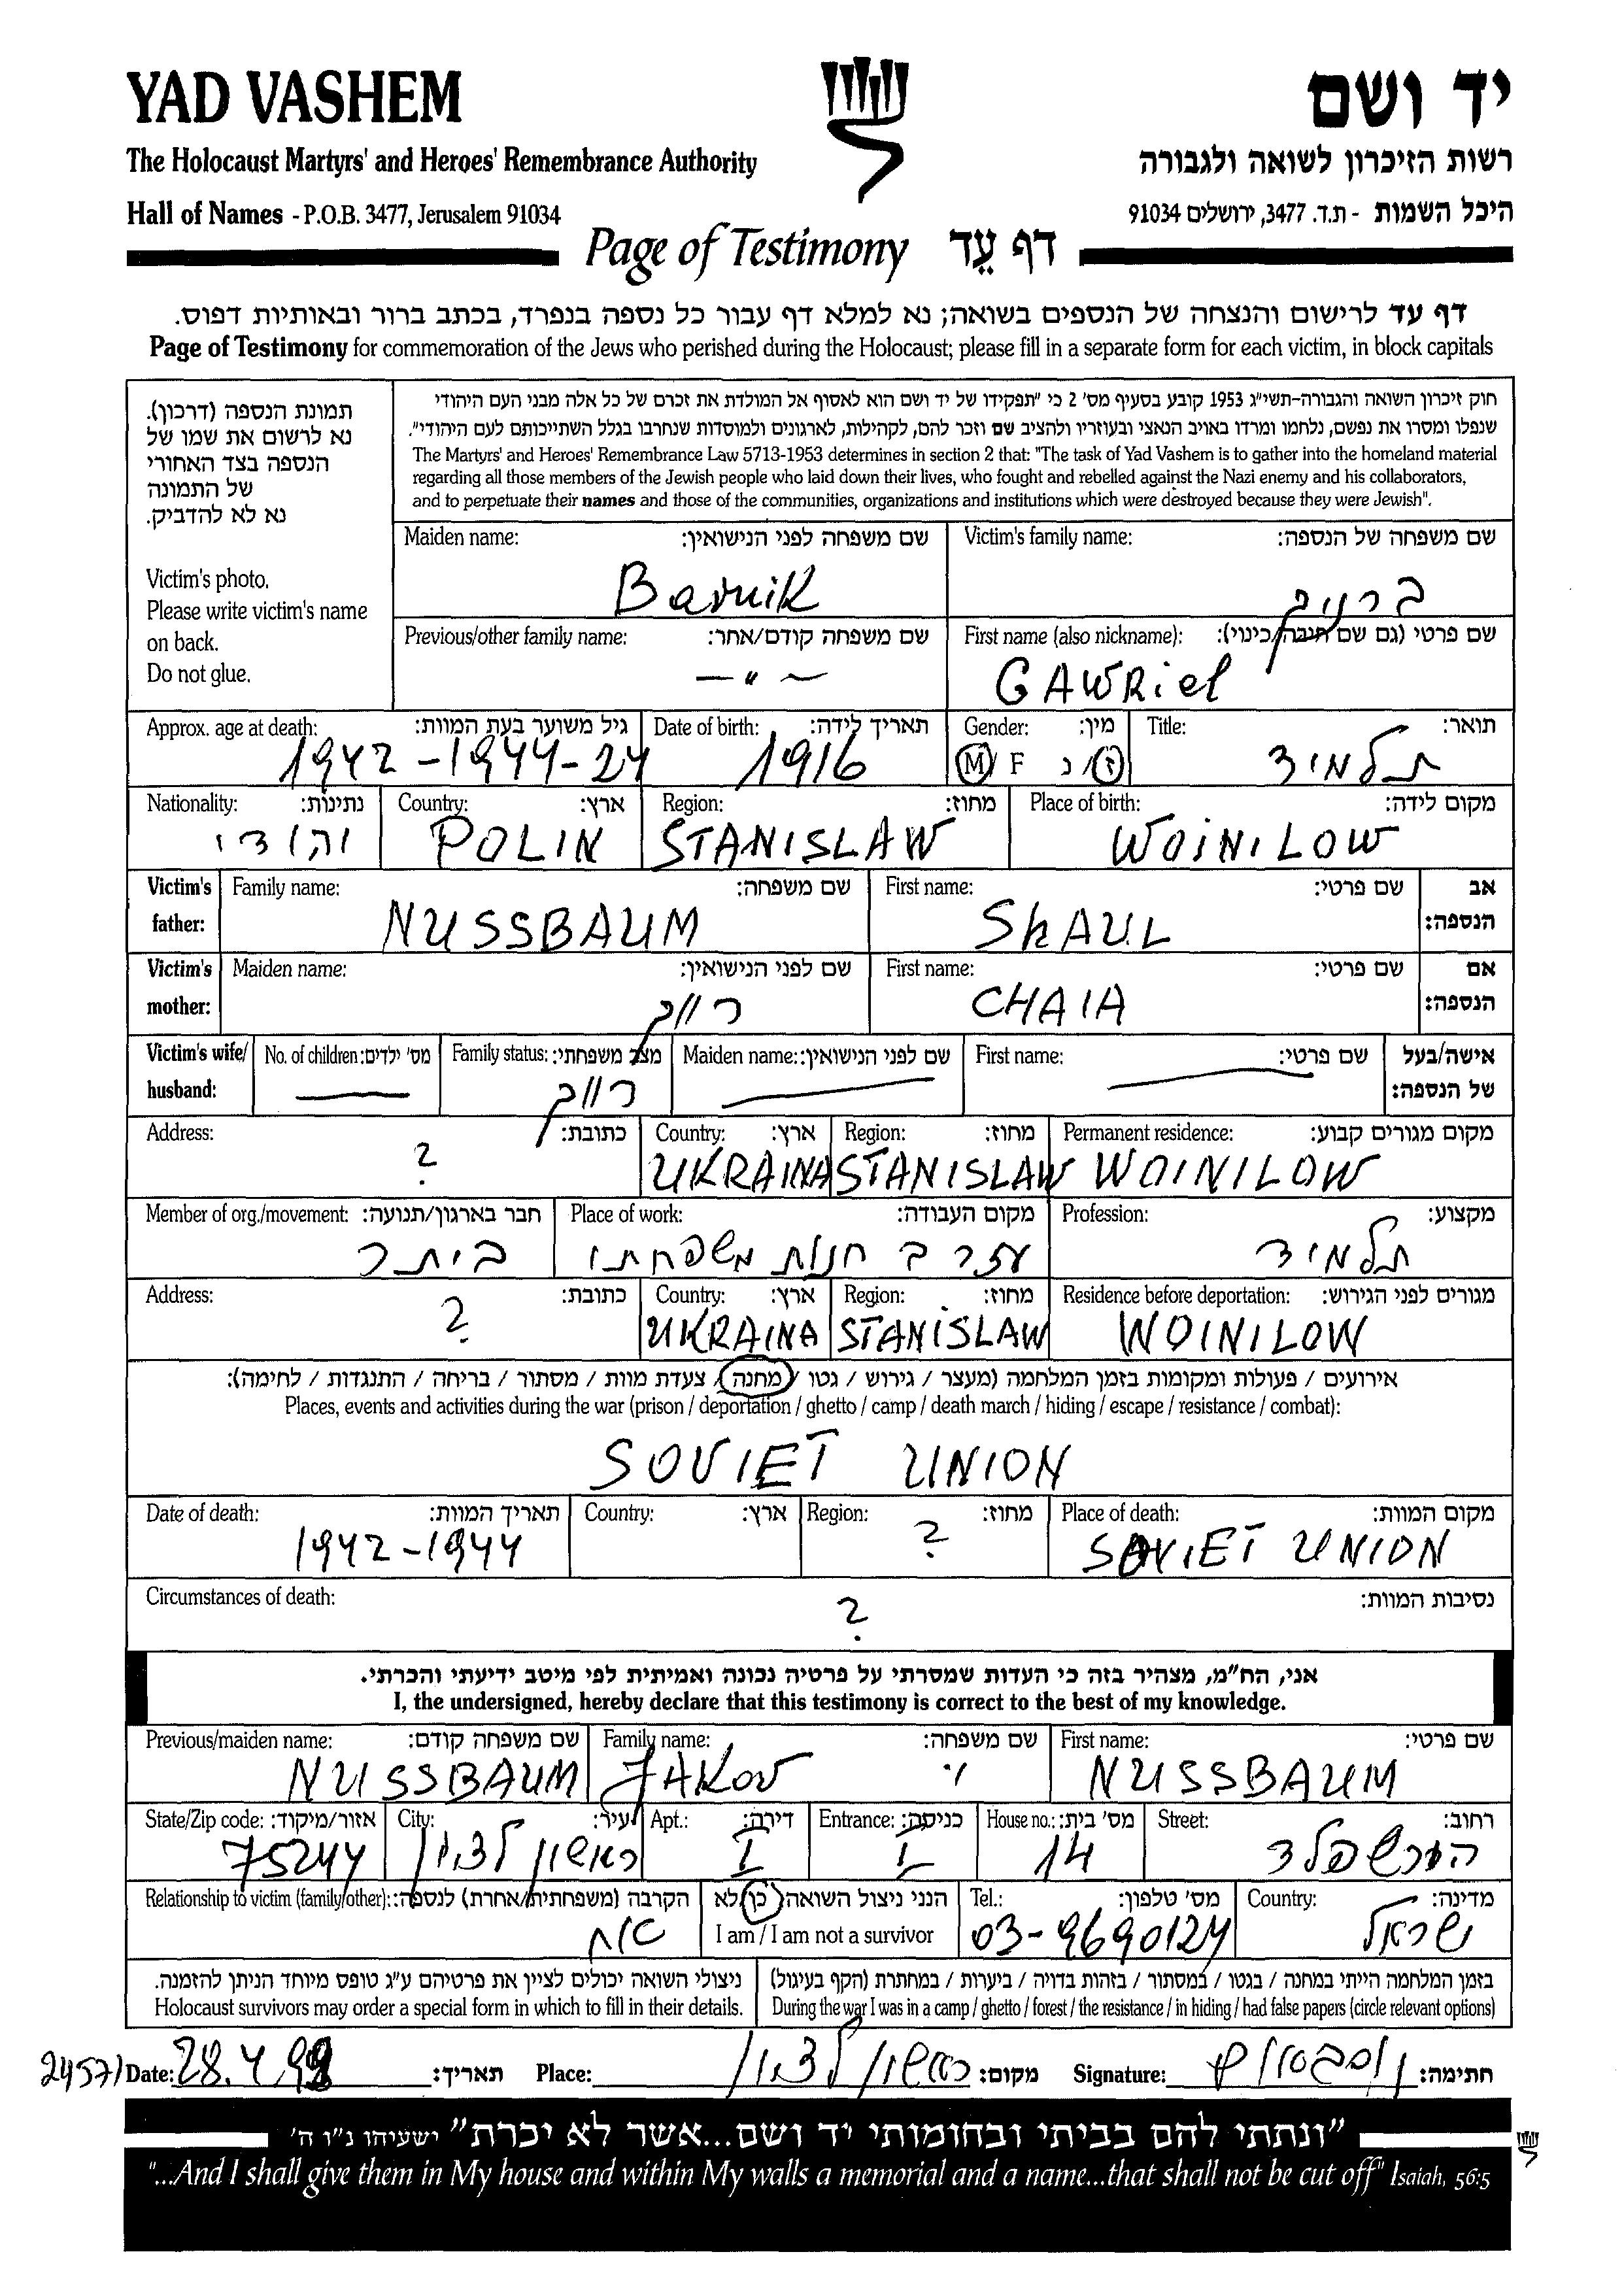 YAD VASHEM
יד ושם
The Holocaust Martyrs' and Heroes' Remembrance Authority
רשות הזיכרון לשואה ולגבורה
Hall of Names - P.O.B. 3477, Jerusalem 91034
היכל השמות - ת.ד. 3477, ירושלים 91034
Page of Testimony דף עֵד
דף עד לרישום והנצחה של הנספים בשואה; נא למלא דף עבור כל נספה בנפרד, בכתב ברור ובאותיות דפוס.
Page of Testimony for commemoration of the Jews who perished during the Holocaust; please fill in a separate form for each victim, in block capitals
תמונת הנספה (דרכון).
נא לרשום את שמו של
הנספה בצד האחורי
של התמונה
נא לא להדביק.
Victim's photo.
Please write victim's name
on back.
Do not glue.
חוק זיכרון השואה והגבורה-תשי"ג 1953 קובע בסעיף מס' 2 כי "תפקידו של יד ושם הוא לאסוף אל המולדת את זכרם של כל אלה מבני העם היהודי
שנפלו ומסרו את נפשם, נלחמו ומרדו באויב הנאצי ובעוזריו ולהציב שם וזכר להם, לקהילות, לארגונים ולמוסדות שנחרבו בגלל השתייכותם לעם היהודי".
The Martyrs' and Heroes' Remembrance Law 5713-1953 determines in section 2 that: "The task of Yad Vashem is to gather into the homeland material
regarding all those members of the Jewish people who laid down their lives, who fought and rebelled against the Nazi enemy and his collaborators,
and to perpetuate their names and those of the communities, organizations and institutions which were destroyed because they were Jewish".
Maiden name: שם משפחה לפני הנישואין: Victim's family name: שם משפחה של הנספה:
Barnik
Previous/other family name: שם משפחה קודם/אחר: First name (also nickname): שם פרטי (גם שם חיבה/כינוי):
— " — GAWRiel
Approx. age at death: גיל משוער בעת המוות: Date of birth: תאריך לידה: Gender: מין: Title: תואר:
1942 - 1944 - 24 1916 M/ F ז/ נ תלמיד
Nationality: נתינות: Country: ארץ: Region: מחוז: Place of birth: מקום לידה:
יהודי POLIN STANISLAW WOiNILOW
Victim's father: Family name: שם משפחה: First name: שם פרטי: אב הנספה:
NUSSBAUM ShAUL
Victim's mother: Maiden name: שם לפני הנישואין: First name: שם פרטי: אם הנספה:
CHAIA
Victim's wife/ husband: No. of children: מס' ילדים: Family status: מצב משפחתי: Maiden name: שם לפני הנישואין: First name: שם פרטי: אישה/בעל של הנספה:
רווק
Address: כתובת: Country: ארץ: Region: מחוז: Permanent residence: מקום מגורים קבוע:
? UKRAINA STANISLAW WOINILOW
Member of org./movement: חבר בארגון/תנועה: Place of work: מקום העבודה: Profession: מקצוע:
ביתר עזר ב חנות משפחתו תלמיד
Address: כתובת: Country: ארץ: Region: מחוז: Residence before deportation: מגורים לפני הגירוש:
? UKRAINA STANiSLAW WOINILOW
אירועים / פעולות ומקומות בזמן המלחמה (מעצר / גירוש / גטו / מחנה / צעדת מוות / מסתור / בריחה / התנגדות / לחימה):
Places, events and activities during the war (prison / deportation / ghetto / camp / death march / hiding / escape / resistance / combat):
SOVIET UNION
Date of death: תאריך המוות: Country: ארץ: Region: מחוז: Place of death: מקום המוות:
1942-1944 ? SOVIET UNION
Circumstances of death: נסיבות המוות:
?
אני, הח"מ, מצהיר בזה כי העדות שמסרתי על פרטיה נכונה ואמיתית לפי מיטב ידיעתי והכרתי.
I, the undersigned, hereby declare that this testimony is correct to the best of my knowledge.
Previous/maiden name: שם משפחה קודם: Family name: שם משפחה: First name: שם פרטי:
NUSSBAUM JAKOV NUSSBAUM
State/Zip code: אזור/מיקוד: City: עיר: Apt.: דירה: Entrance: כניסה: House no.: מס' בית: Street: רחוב:
75244 ראשון לציון I I 14 הירשפלד
Relationship to victim (family/other): הקרבה (משפחתית/אחרת) לנספה: הנני ניצול השואה כן/לא Tel.: מס' טלפון: Country: מדינה:
אח I am / I am not a survivor 03-9690124 ישראל
ניצולי השואה יכולים לציין את פרטיהם ע"ג טופס מיוחד הניתן להזמנה. בזמן המלחמה הייתי במחנה / בגטו / במסתור / בזהות בדויה / ביערות / במחתרת (הקף בעיגול)
Holocaust survivors may order a special form in which to fill in their details. During the war I was in a camp / ghetto / forest / the resistance / in hiding / had false papers (circle relevant options)
Date: 28.4.99 תאריך: Place: ראשון לציון מקום: Signature: נוסבאום חתימה:
"ונתתי להם בביתי ובחומותי יד ושם...אשר לא יכרת" ישעיהו נ"ו ה'
"...And I shall give them in My house and within My walls a memorial and a name...that shall not be cut off" Isaiah, 56:5